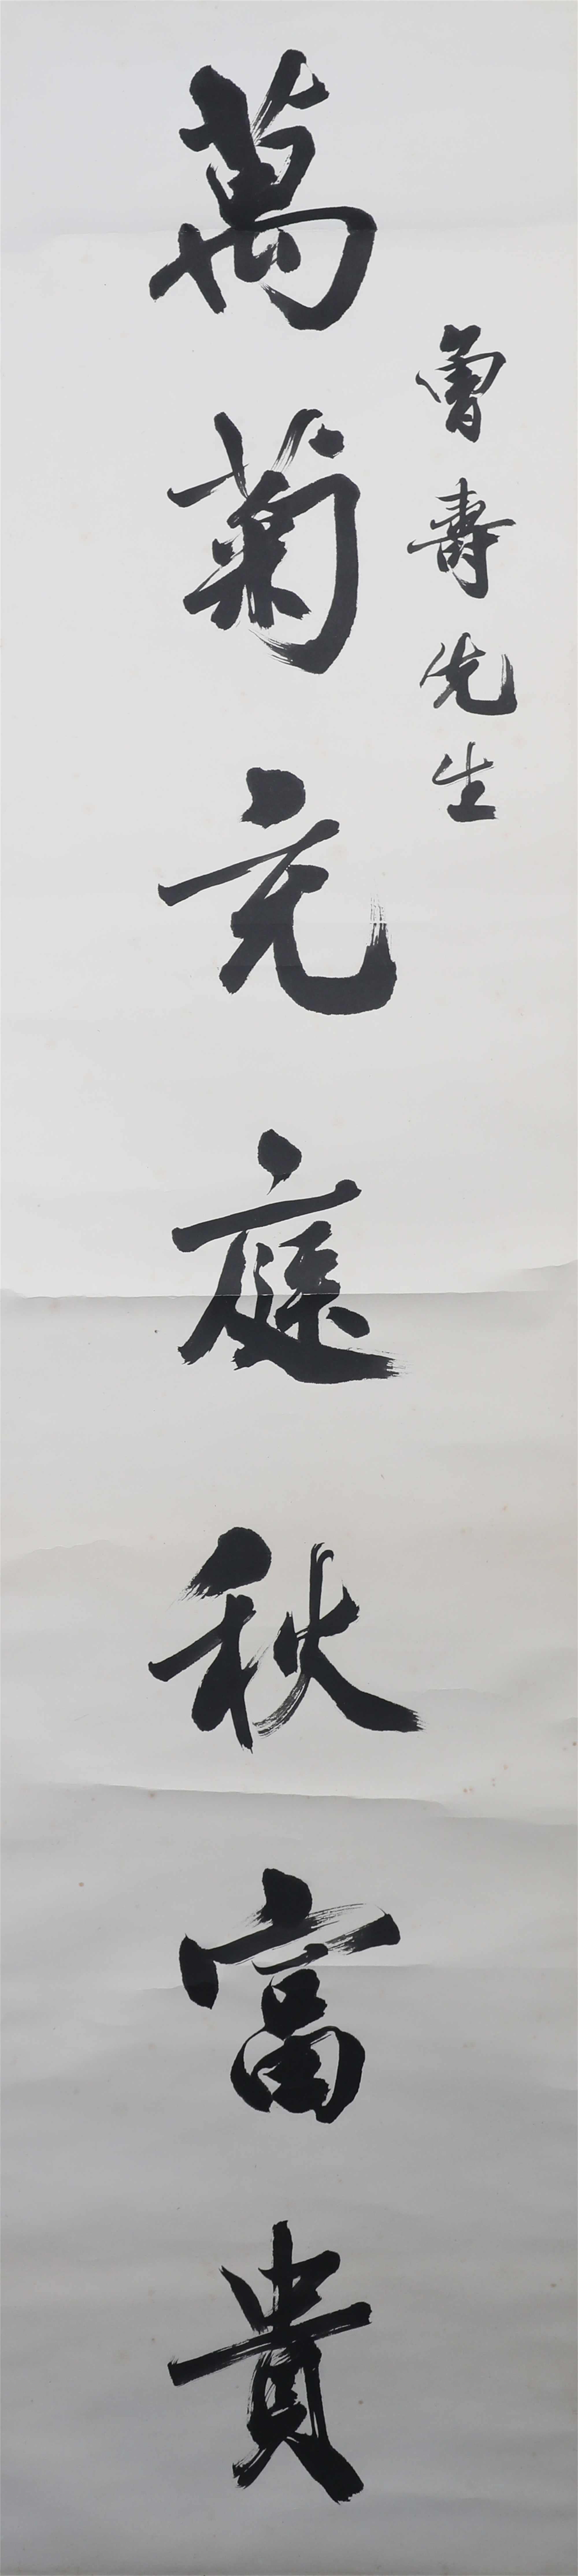 壽先生
萬菊充庭秋富貴